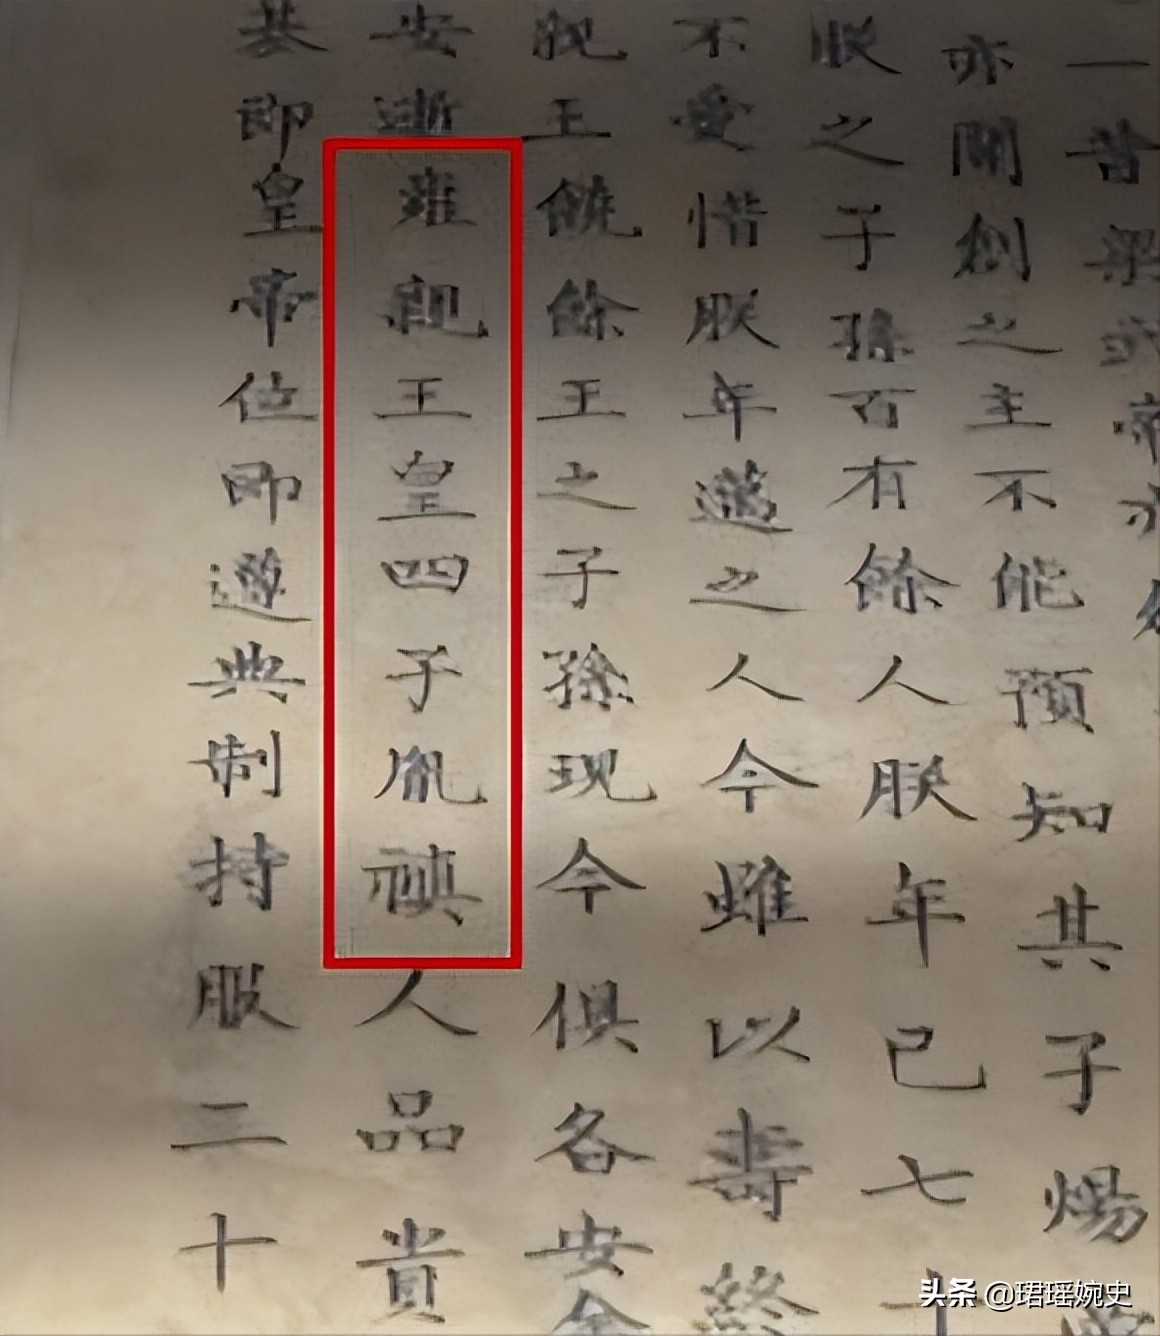 一昔梁武帝亦
亦開創之主不能預知其子煬
朕之子孫百有餘人朕年已七十
不愛惜朕年邁之人今雖以壽終
親王饒餘王之子孫现今俱各安全
安逝雍親王皇四子胤禛人品貴
基即皇帝位即遵典制持服二十
头条 @珺瑶婉史